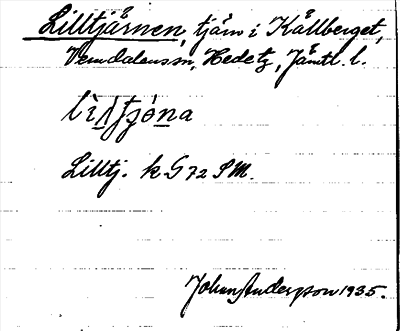 Lilltjärnen, tjärn i Kållberget,
Vemdalens sn, Hedetz, Jämtl. l.
Lilltj. k G 72 SM.
Johan Anderson 1935.